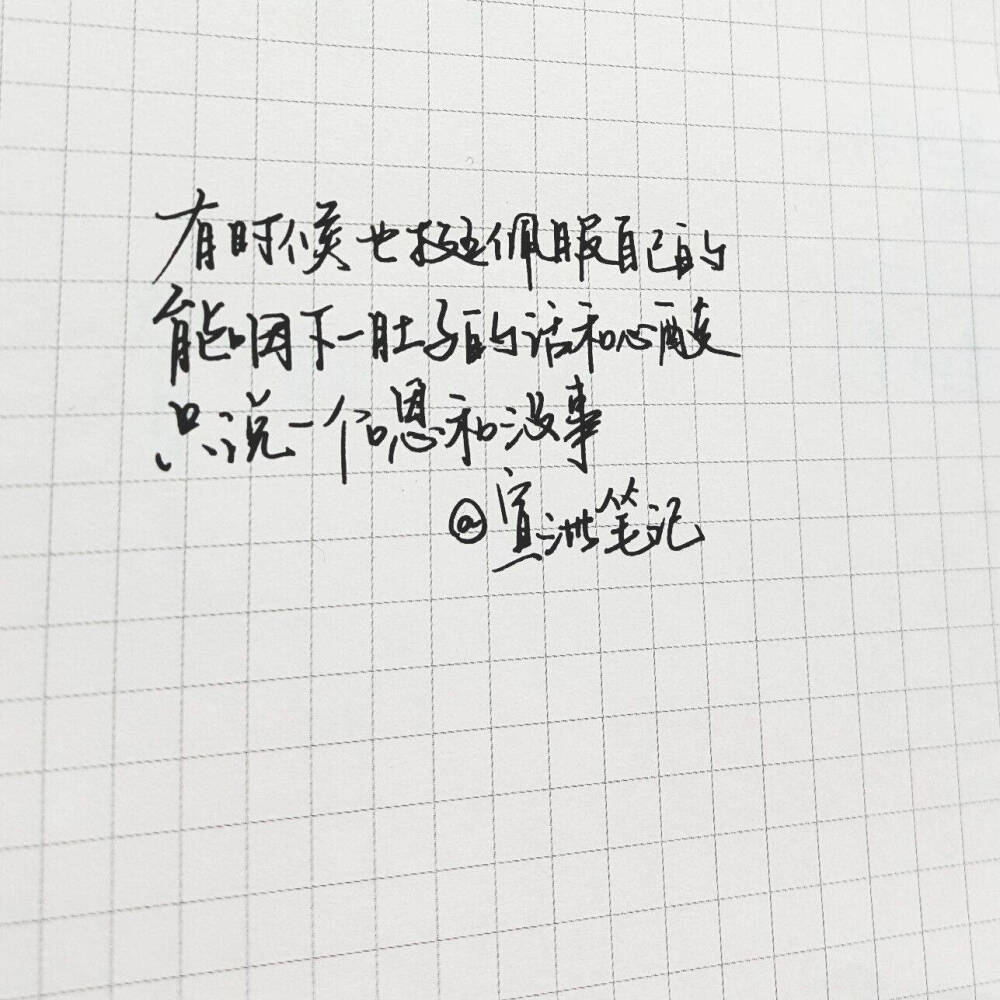 有时候也挺佩服自己的
能咽下一肚子的话和心酸
只说一个嗯和没事
@宣洲笔记